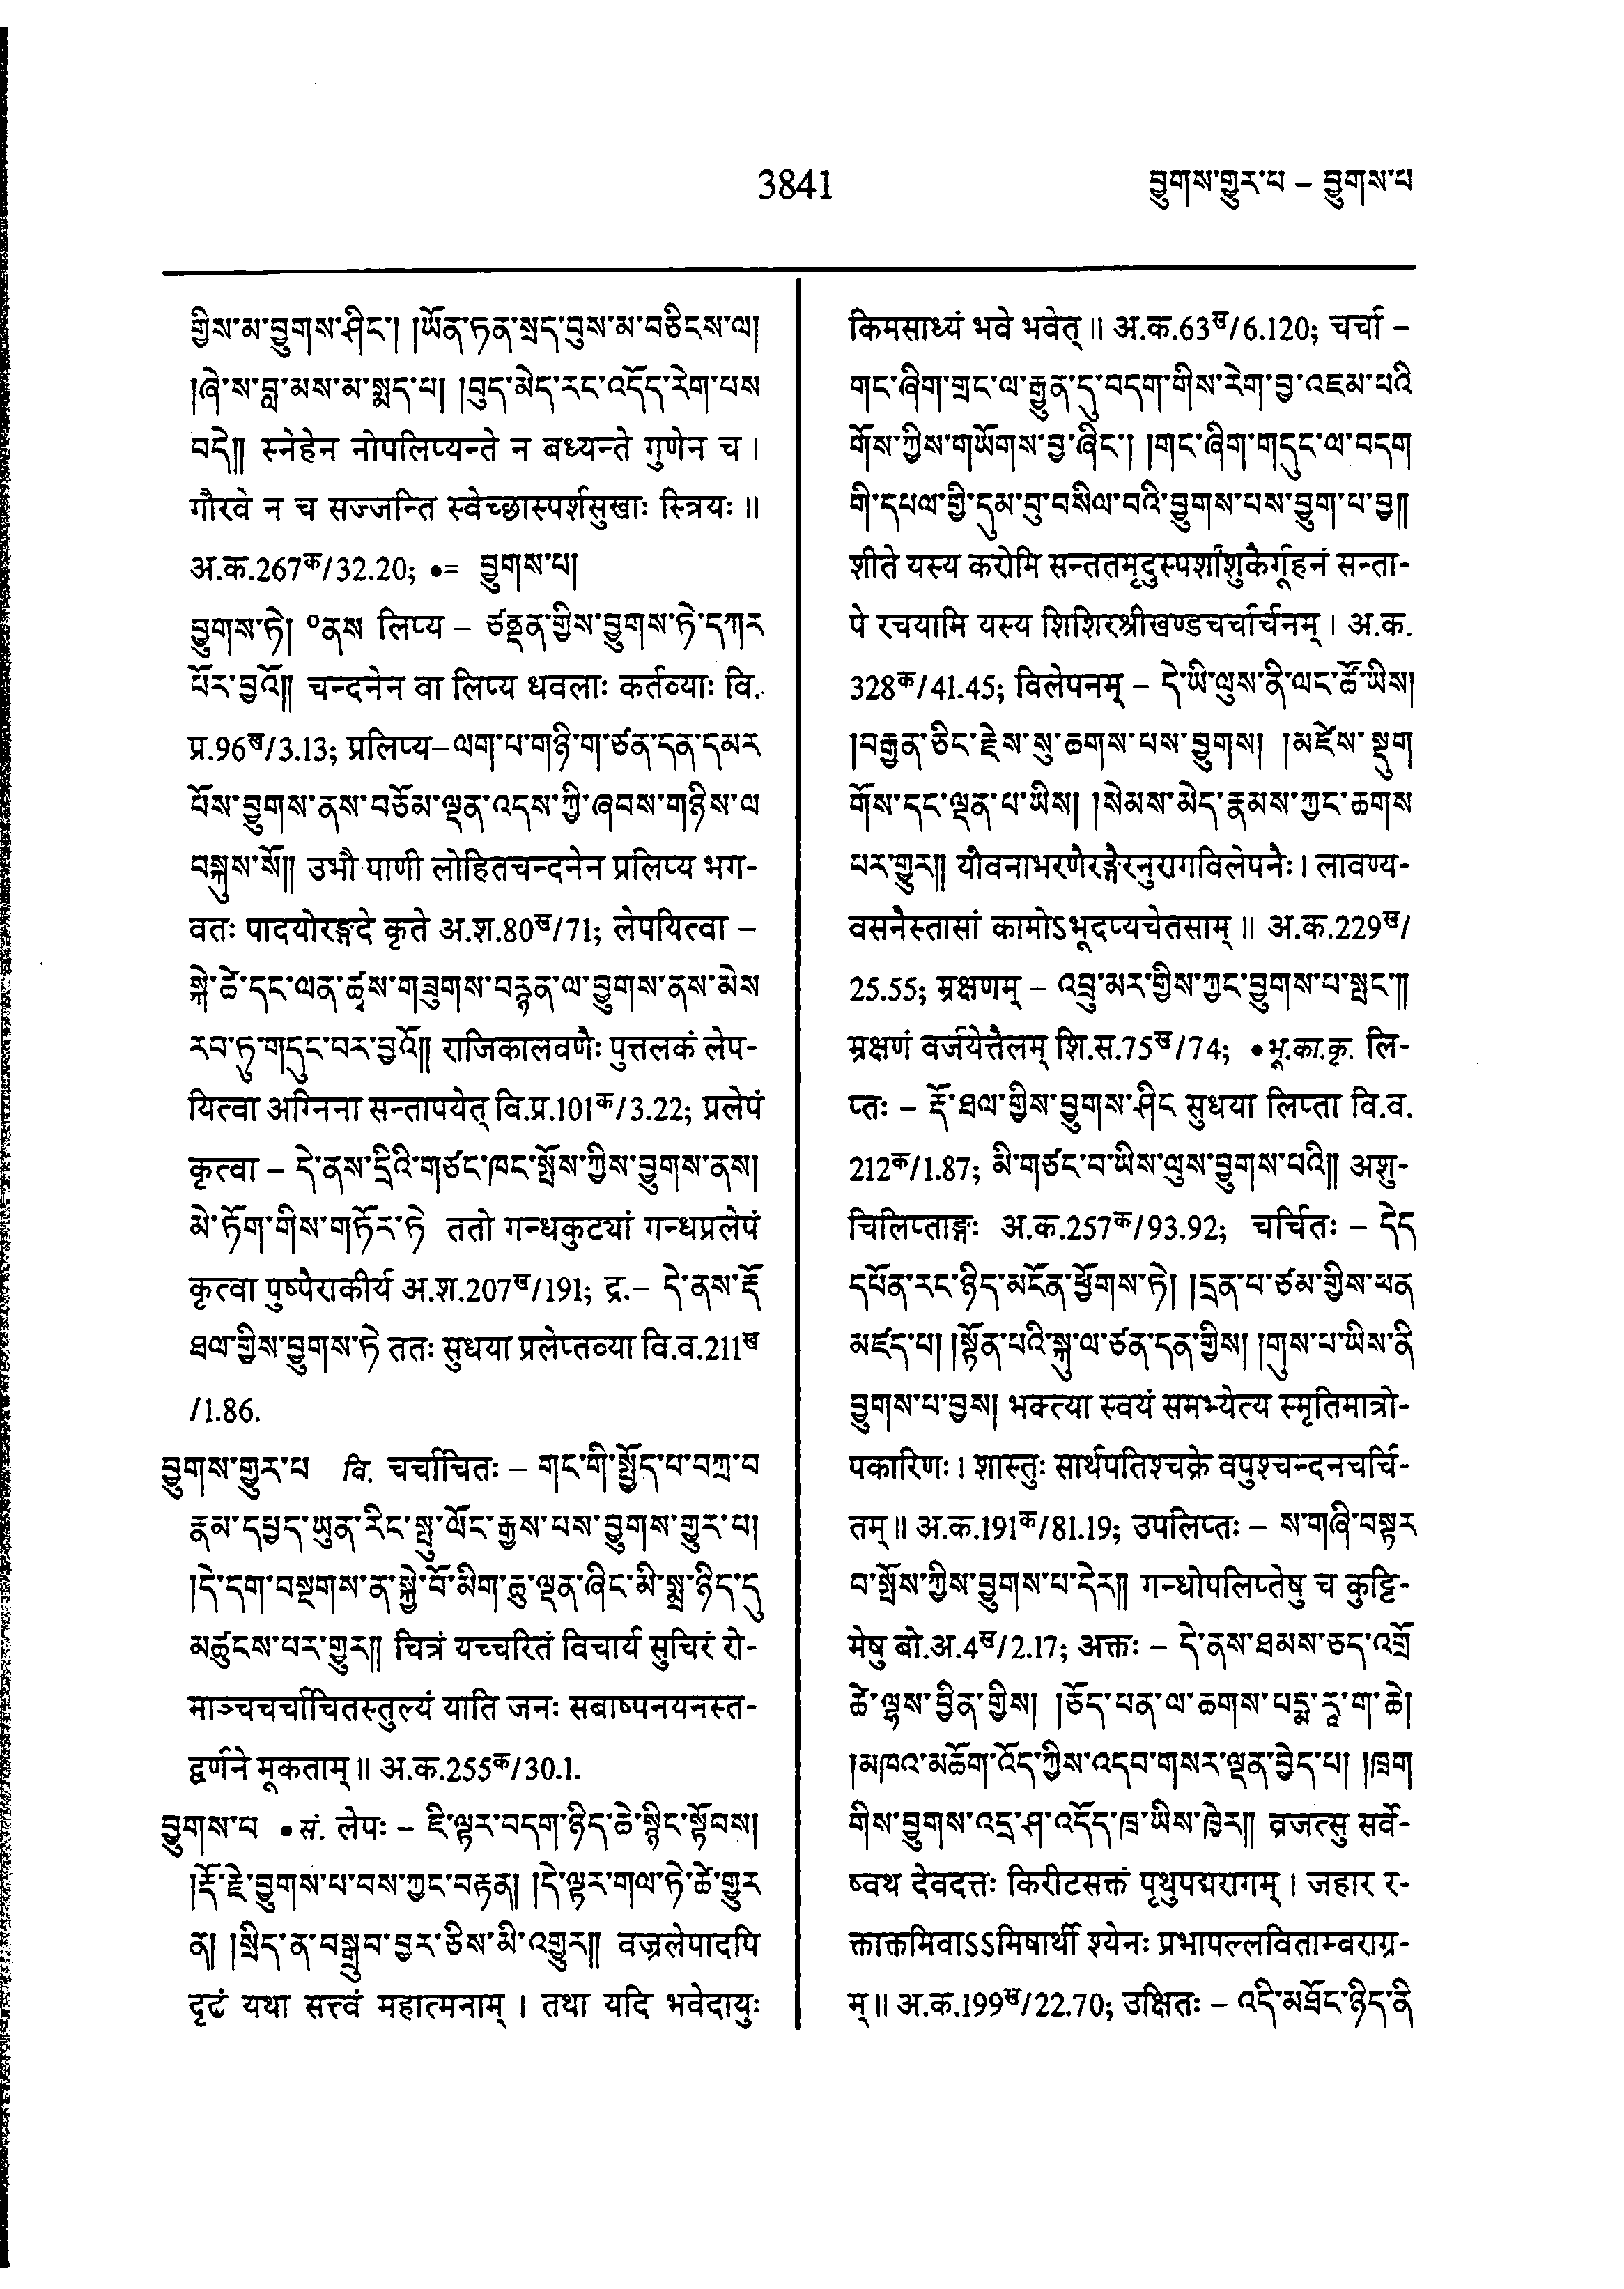 3841
བྱུགས་གྱུར་པ – བྱུགས་པ
གྱིས་མ་བྱུགས་ཤིང་། །ཡོན་ཏན་སྲད་བུས་མ་བཅིངས་ལ།
།ཞེ་ས་བླ་མས་མ་སྨད་པ། །བུད་མེད་རང་འདོད་རེག་པས
བདེ༎ स्नेहेन नोपलिप्यन्ते न बध्यन्ते गुणेन च ।
गौरवे न च सज्जन्ति स्वेच्छास्पर्शसुखाः स्त्रियः ॥
अ.क.267क/32.20; •= བྱུགས་པ།
བྱུགས་ཏེ། ०ནས लिप्य – ཙནྡན་གྱིས་བྱུགས་ཏེ་དཀར
པོར་བྱའོ༎ चन्दनेन वा लिप्य धवलाः कर्तव्याः वि.
प्र.96ख/3.13; प्रलिप्य–ལག་པ་གཉི་ག་ཙན་དན་དམར
པོས་བྱུགས་ནས་བཅོམ་ལྡན་འདས་ཀྱི་ཞབས་གཉིས་ལ
བསྐུས་སོ༎ उभौ पाणी लोहितचन्दनेन प्रलिप्य भग-
वतः पादयोरङ्गदे कृते अ.श.80ख/71; लेपयित्वा –
སྐེ་ཚེ་དང་ལན་ཚྭས་གཟུགས་བརྙན་ལ་བྱུགས་ནས་མེས
རབ་ཏུ་གདུང་བར་བྱའོ༎ राजिकालवणैः पुत्तलकं लेप-
यित्वा अग्निना सन्तापयेत् वि.प्र.101क/3.22; प्रलेपं
कृत्वा – དེ་ནས་དྲིའི་གཙང་ཁང་སྤོས་ཀྱིས་བྱུགས་ནས།
མེ་ཏོག་གིས་གཏོར་ཏེ ततो गन्धकुट्यां गन्धप्रलेपं
कृत्वा पुष्पैराकीर्य अ.श.207ख/191; द्र.– དེ་ནས་རྡོ
ཐལ་གྱིས་བྱུགས་ཏེ ततः सुधया प्रलेप्तव्या वि.व.211ख
/1.86.
བྱུགས་གྱུར་པ वि. चर्चाचितः – གང་གི་སྤྱོད་པ་བཀྲ་བ
རྣམ་དཔྱད་ཡུན་རིང་སྤུ་ལོང་རྒྱས་པས་བྱུགས་གྱུར་པ།
།དེ་དག་བསྔགས་ན་སྐྱེ་བོ་མིག་ཆུ་ལྡན་ཞིང་མི་སྨྲ་ཉིད་དུ
མཚུངས་པར་གྱུར༎ चित्रं यच्चरितं विचार्य सुचिरं रो-
माञ्चचर्चाचितस्तुल्यं याति जनः सबाष्पनयनस्त-
द्वर्णने मूकताम् ॥ अ.क.255क/30.1.
བྱུགས་པ • सं. लेपः – ཇི་ལྟར་བདག་ཉིད་ཆེ་སྙིང་སྟོབས།
།རྡོ་རྗེ་བྱུགས་པ་བས་ཀྱང་བརྟན། །དེ་ལྟར་གལ་ཏེ་ཚེ་གྱུར
ན། །སྲིད་ན་བསྒྲུབ་བྱར་ཅིས་མི་འགྱུར༎ वज्रलेपादपि
दृढं यथा सत्त्वं महात्मनाम् । तथा यदि भवेदायुः
किमसाध्यं भवे भवेत् ॥ अ.क.63ख/6.120; चर्चा –
གང་ཞིག་གྲང་ལ་རྒྱུན་དུ་བདག་གིས་རེག་བྱ་འཇམ་པའི
གོས་ཀྱིས་གཡོགས་བྱ་ཞིང་། །གང་ཞིག་གདུང་ལ་བདག
གི་དཔལ་གྱི་དུམ་བུ་བསིལ་བའི་བྱུགས་པས་བྱུག་པ་བྱ༎
शीते यस्य करोमि सन्ततमृदुस्पर्शांशुकैर्गूहनं सन्ता-
पे रचयामि यस्य शिशिरश्रीखण्डचर्चार्चनम् । अ.क.
328क/41.45; विलेपनम् – དེ་ཡི་ལུས་ནི་ལང་ཚོ་ཡིས།
།བརྒྱན་ཅིང་རྗེས་སུ་ཆགས་པས་བྱུགས། །མཛེས་སྡུག
གོས་དང་ལྡན་པ་ཡིས། །སེམས་མེད་རྣམས་ཀྱང་ཆགས
པར་གྱུར༎ यौवनाभरणैरङ्गैरनुरागविलेपनैः । लावण्य-
वसनैस्तासां कामोऽभूदप्यचेतसाम् ॥ अ.क.229ख/
25.55; म्रक्षणम् – འབྲུ་མར་གྱིས་ཀྱང་བྱུགས་པ་སྤང་༎
म्रक्षणं वर्जयेत्तैलम् शि.स.75ख/74; • भू.का.कृ. लि-
प्तः – རྡོ་ཐལ་གྱིས་བྱུགས་ཤིང सुधया लिप्ता वि.व.
212क/1.87; མི་གཙང་བ་ཡིས་ལུས་བྱུགས་པའི༎ अशु-
चिलिप्ताङ्गः अ.क.257क/93.92; चर्चितः – དེད
དཔོན་རང་ཉིད་མངོན་ཕྱོགས་ཏེ། །དྲན་པ་ཙམ་གྱིས་ཕན
མཛད་པ། །སྟོན་པའི་སྐུ་ལ་ཙན་དན་གྱིས། །གུས་པ་ཡིས་ནི
བྱུགས་པ་བྱས། भक्त्या स्वयं समभ्येत्य स्मृतिमात्रो-
पकारिणः । शास्तुः सार्थपतिश्चक्रे वपुश्चन्दनचर्चि-
तम् ॥ अ.क.191क/81.19; उपलिप्तः – ས་གཞི་བསྟར
བ་སྤོས་ཀྱིས་བྱུགས་པ་དེར༎ गन्धोपलिप्तेषु च कुट्टि-
मेषु बो.अ.4ख/2.17; अक्तः – དེ་ནས་ཐམས་ཅད་འགྲོ
ཚེ་ལྷས་བྱིན་གྱིས། །ཅོད་པན་ལ་ཆགས་པདྨ་རཱ་ག་ཆེ།
།མཁའ་མཆོག་འོད་ཀྱིས་འདབ་གསར་ལྡན་བྱེད་པ། །ཁྲག
གིས་བྱུགས་འདྲ་ཤ་འདོད་ཁྲ་ཡིས་ཁྱེར༎ व्रजत्सु सर्वे-
ष्वथ देवदत्तः किरीटसक्तं पृथुपद्मरागम् । जहार र-
क्ताक्तमिवाऽऽमिषार्थी श्येनः प्रभापल्लविताम्बराग्र-
म् ॥ अ.क.199ख/22.70; उक्षितः – འདི་མཐོང་ཉིད་ནི